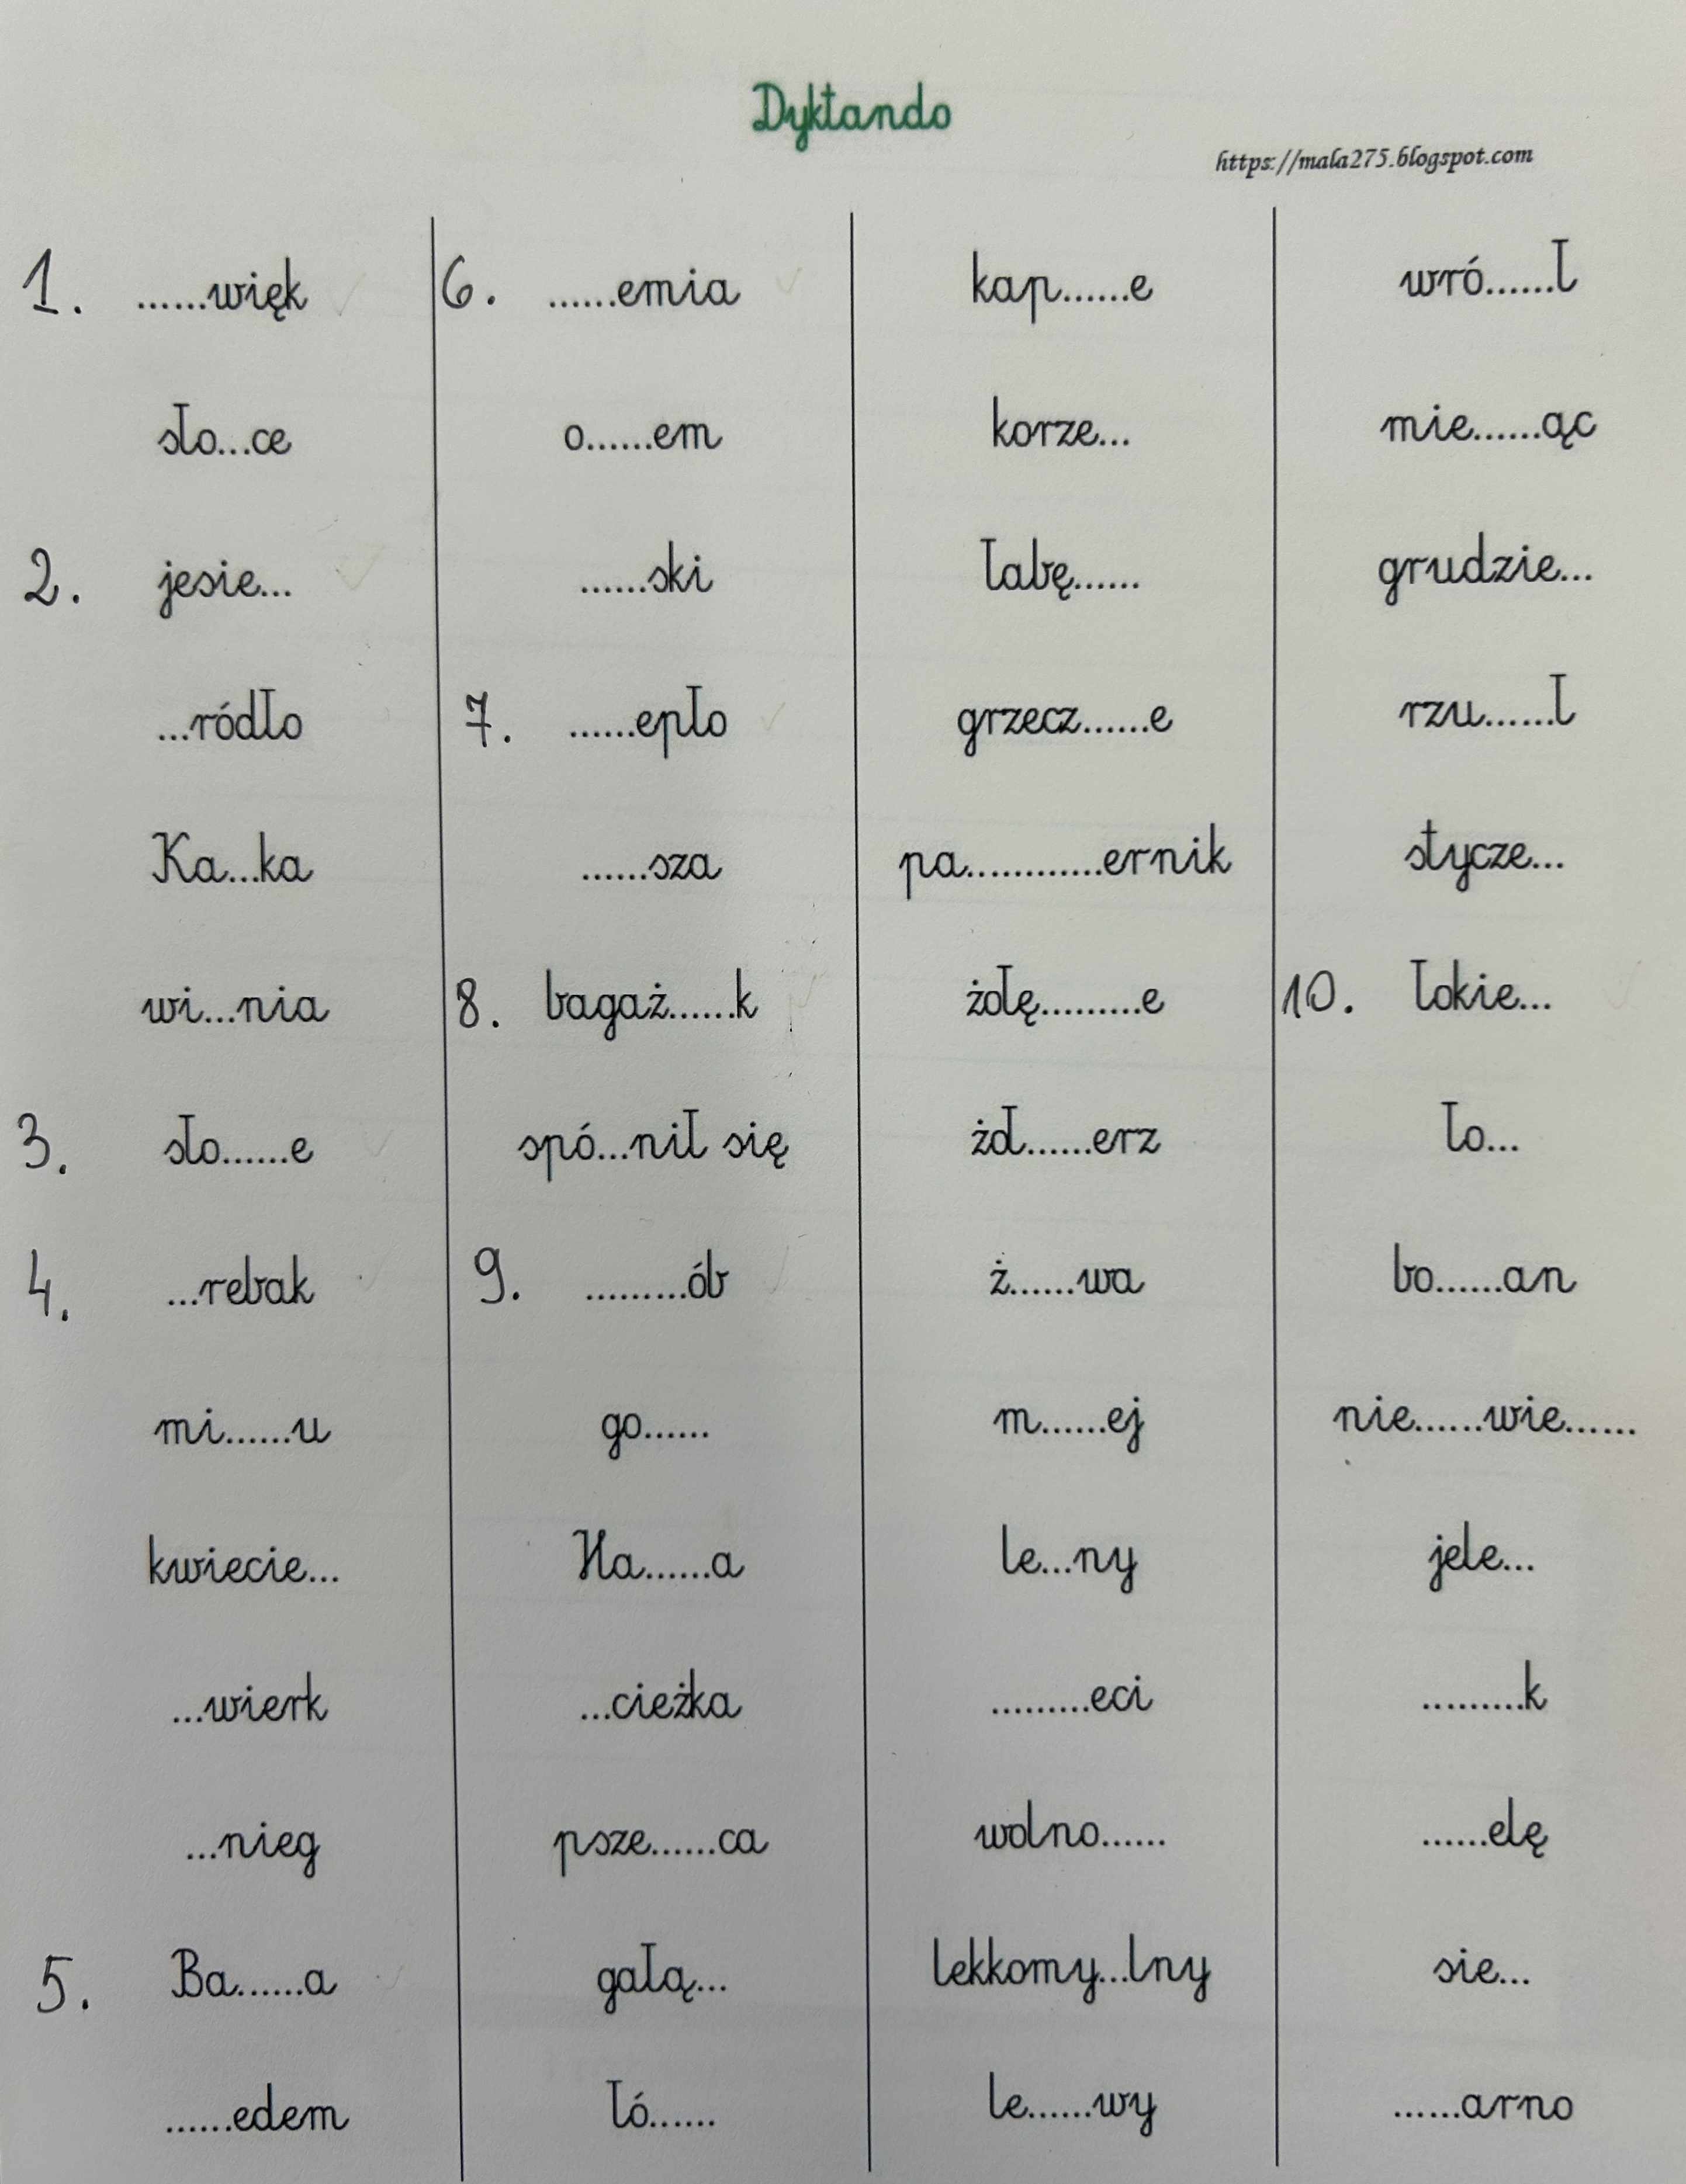 Dyktando
https://mala275.blogspot.com
1. ......więk
sło...ce
2. jesie...
...ródło
Ka...ka
wi...nia
3. sło......e
4. ...rebak
mi......u
kwiecie...
...wierk
...nieg
5. Ba......a
......edem
6. ......emia
o......em
......ski
7. ......epło
......sza
8. bagaż......k
spó...nił się
9. .........ób
go......
Ha......a
...cieżka
psze......ca
gałą...
łó......
kap......e
korze...
łabę......
grzecz......e
pa............ernik
żołę.........e
żoł......erz
ż......wa
m......ej
le...ny
.........eci
wolno......
lekkomy...lny
le......wy
wró......l
mie......ąc
grudzie...
rzu......ł
stycze...
10. łokie...
ło...
bo......an
nie......wie......
jele...
.........k
......elę
sie...
......arno